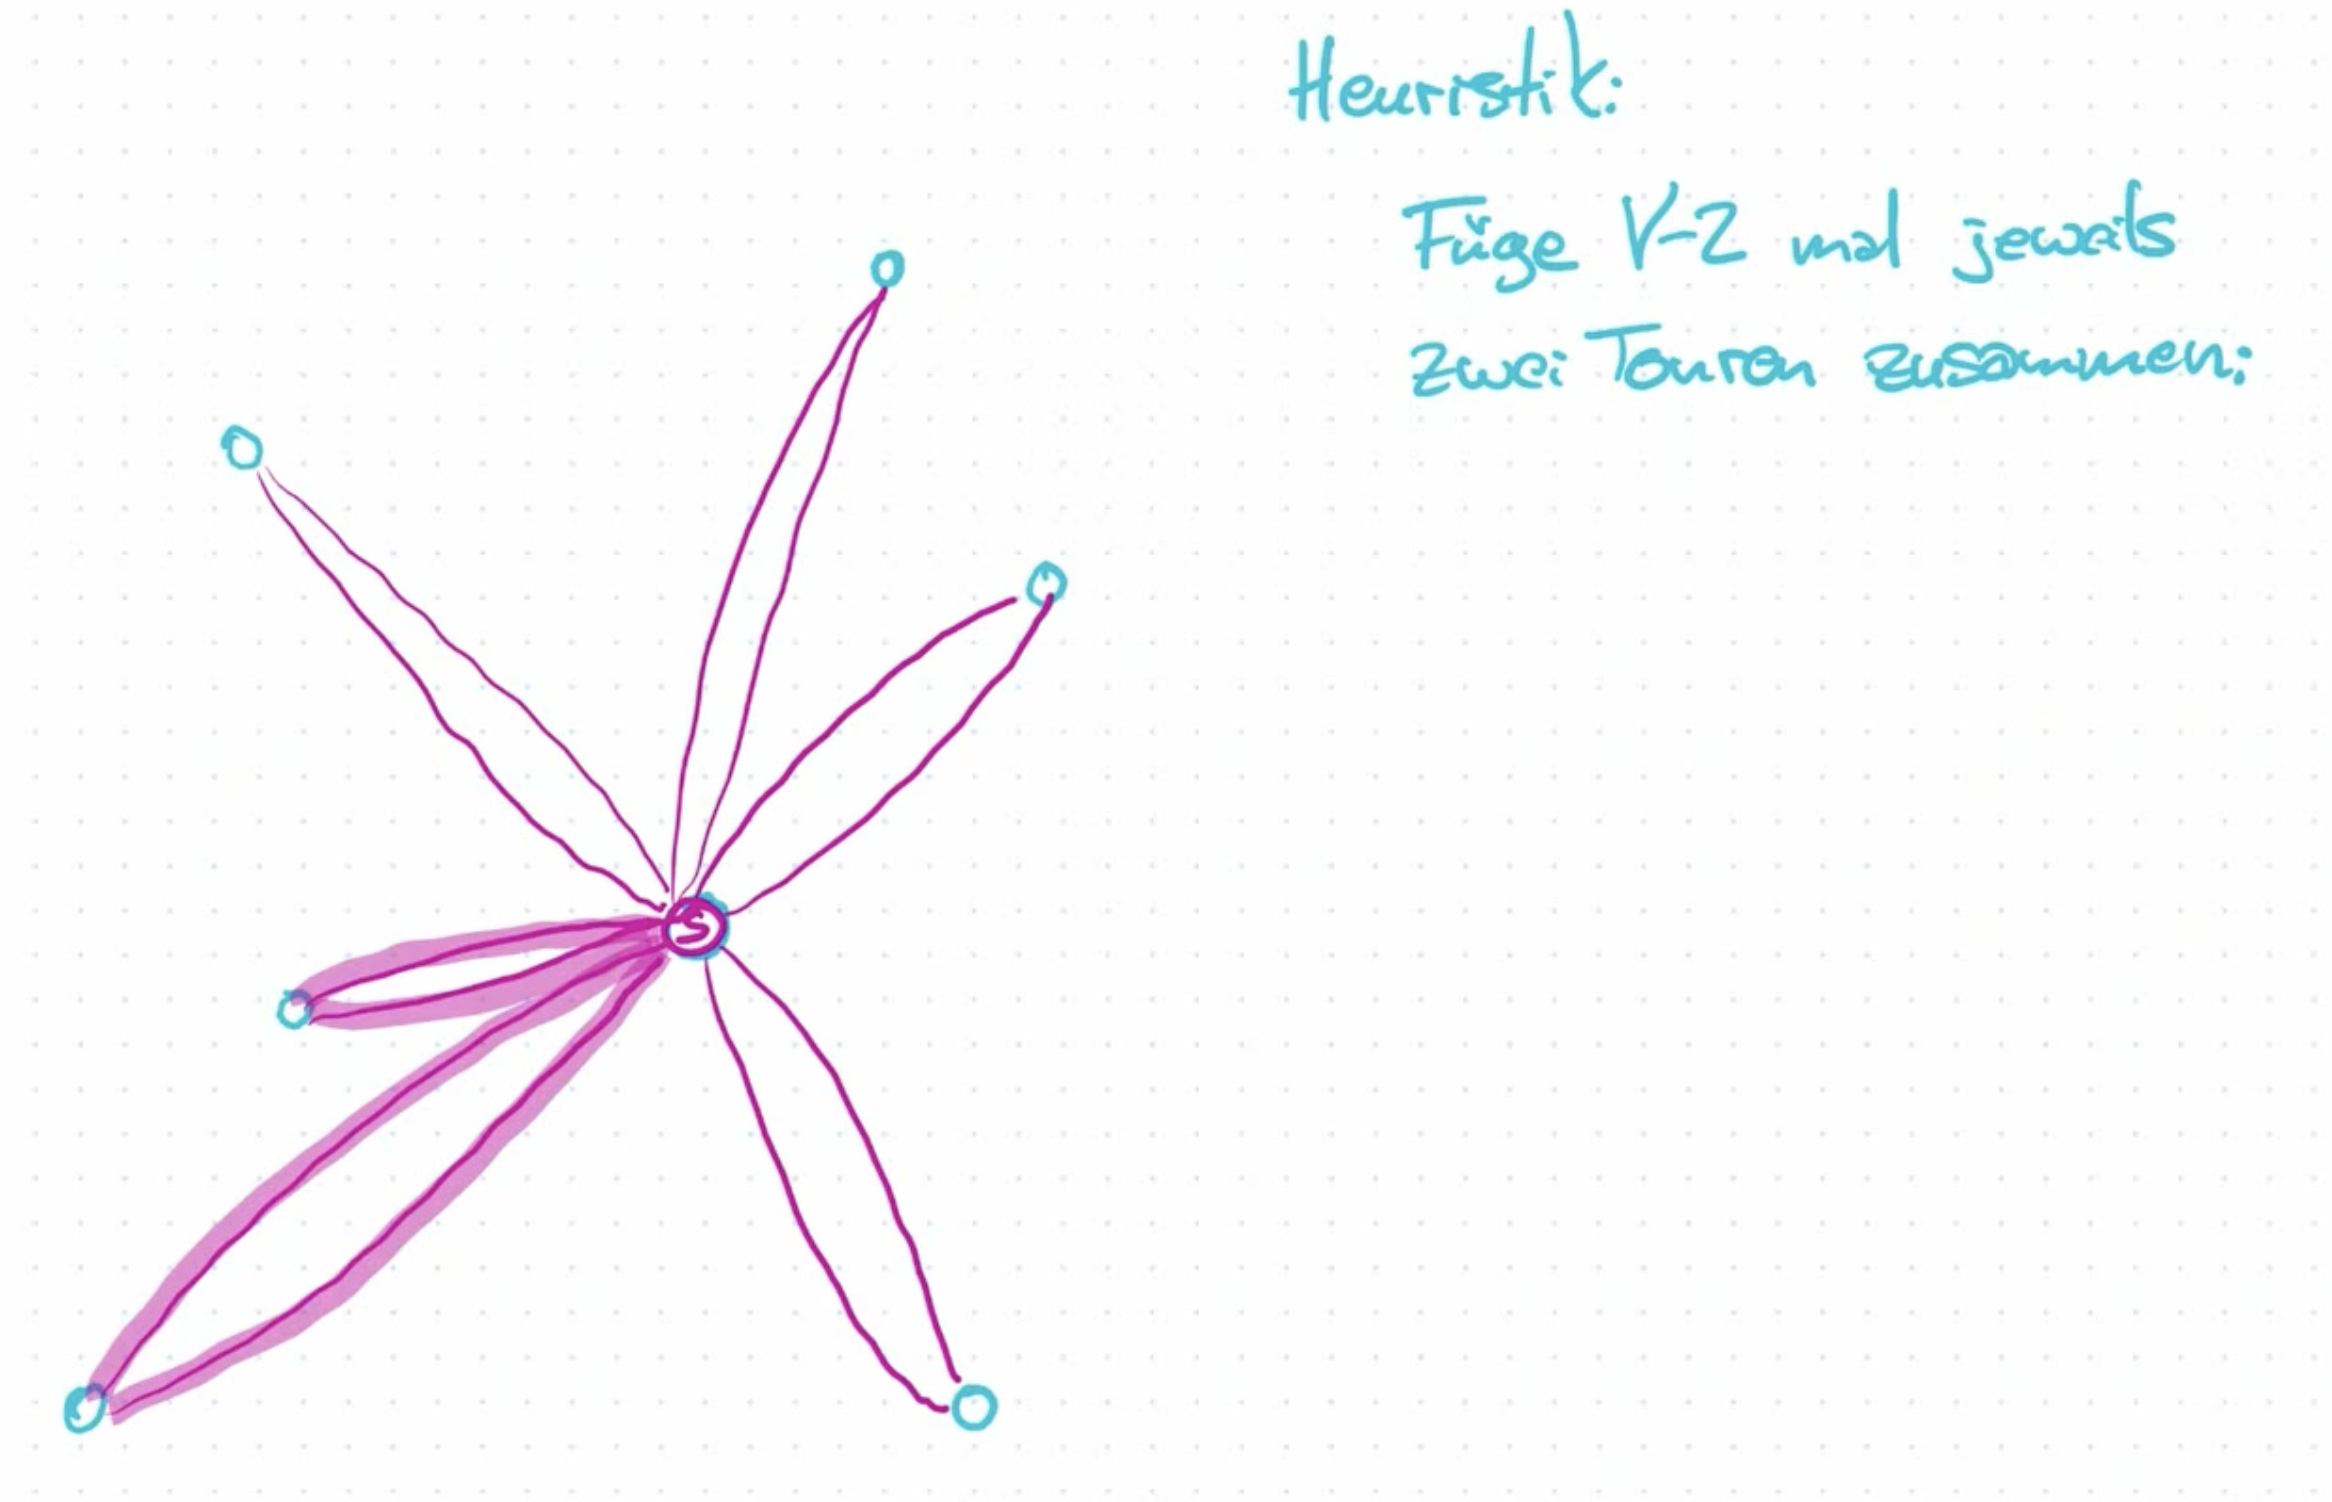 Heuristik:
Füge V-2 mal jeweils
zwei Touren zusammen:
S